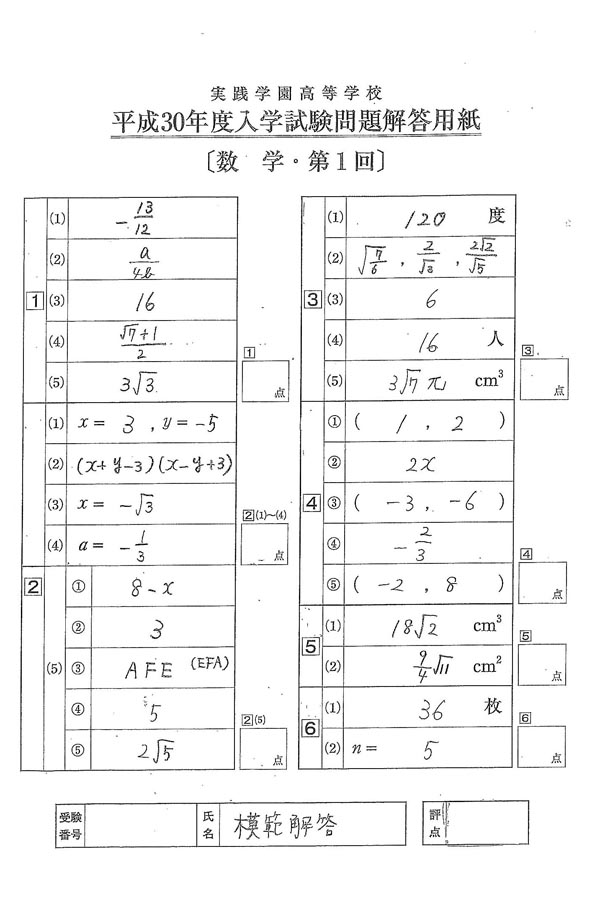 実践学園高等学校
平成30年度入学試験問題解答用紙
〔数 学・第1回〕
1
(1) -13/12
(2) a/4b
(3) 16
(4) (√7+1)/2
(5) 3√3
1
点
2
(1) x = 3 , y = -5
(2) (x+y-3)(x-y+3)
(3) x = -√3
(4) a = -1/3
2(1)~(4)
点
(5)
① 8-x
② 3
③ AFE (EFA)
④ 5
⑤ 2√5
2(5)
点
3
(1) 120 度
(2) √(7/6) , 2/√3 , 2√2/√5
(3) 6
(4) 16 人
(5) 3√7π cm³
3
点
4
① ( 1 , 2 )
② 2x
③ ( -3 , -6 )
④ -2/3
⑤ ( -2 , 8 )
4
点
5
(1) 18√2 cm³
(2) 9/4√11 cm²
5
点
6
(1) 36 枚
(2) n = 5
6
点
受験番号
氏名 模範解答
評点